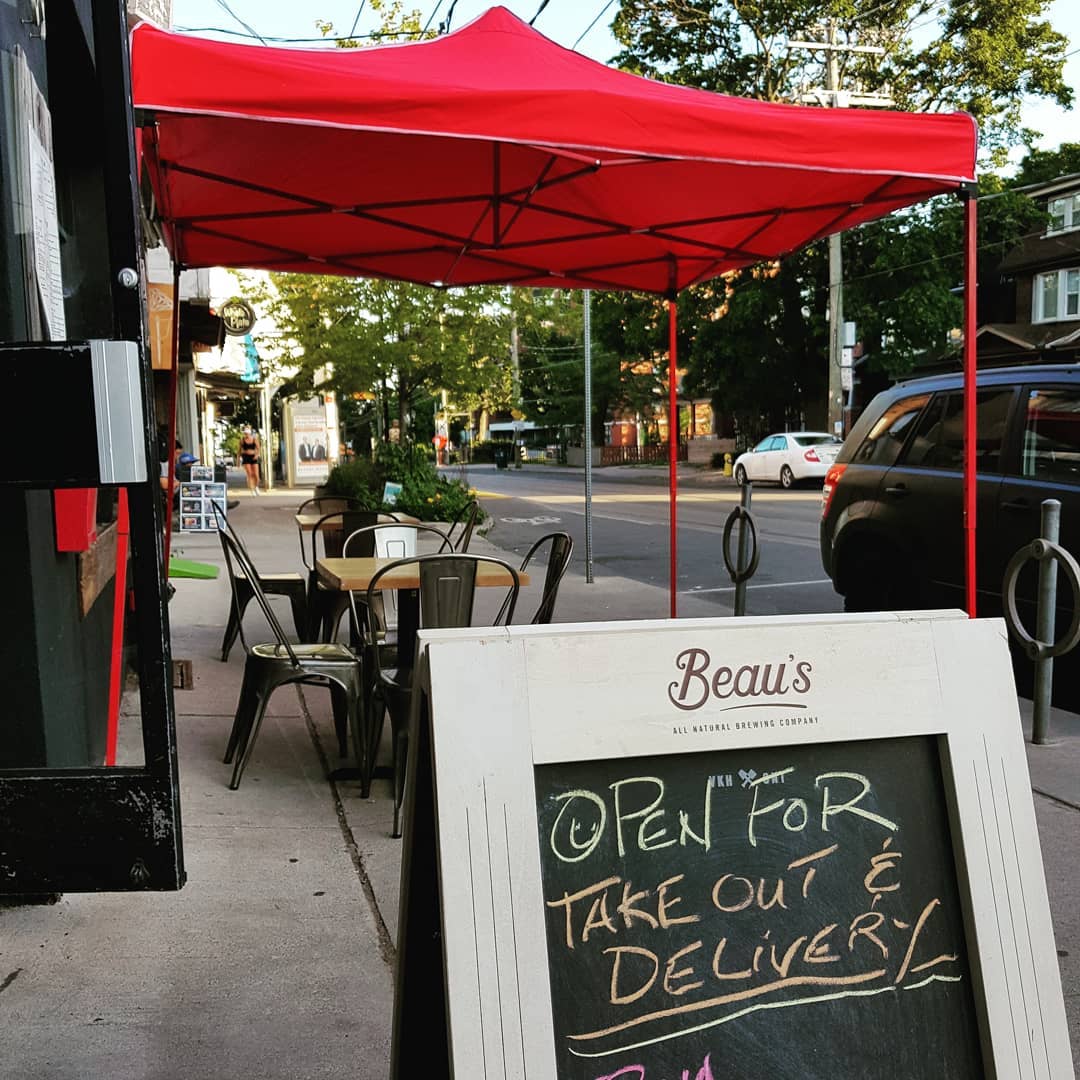 Beau's
ALL NATURAL BREWING COMPANY
VKH ONT
OPEN FOR
TAKE OUT &
DELIVERY